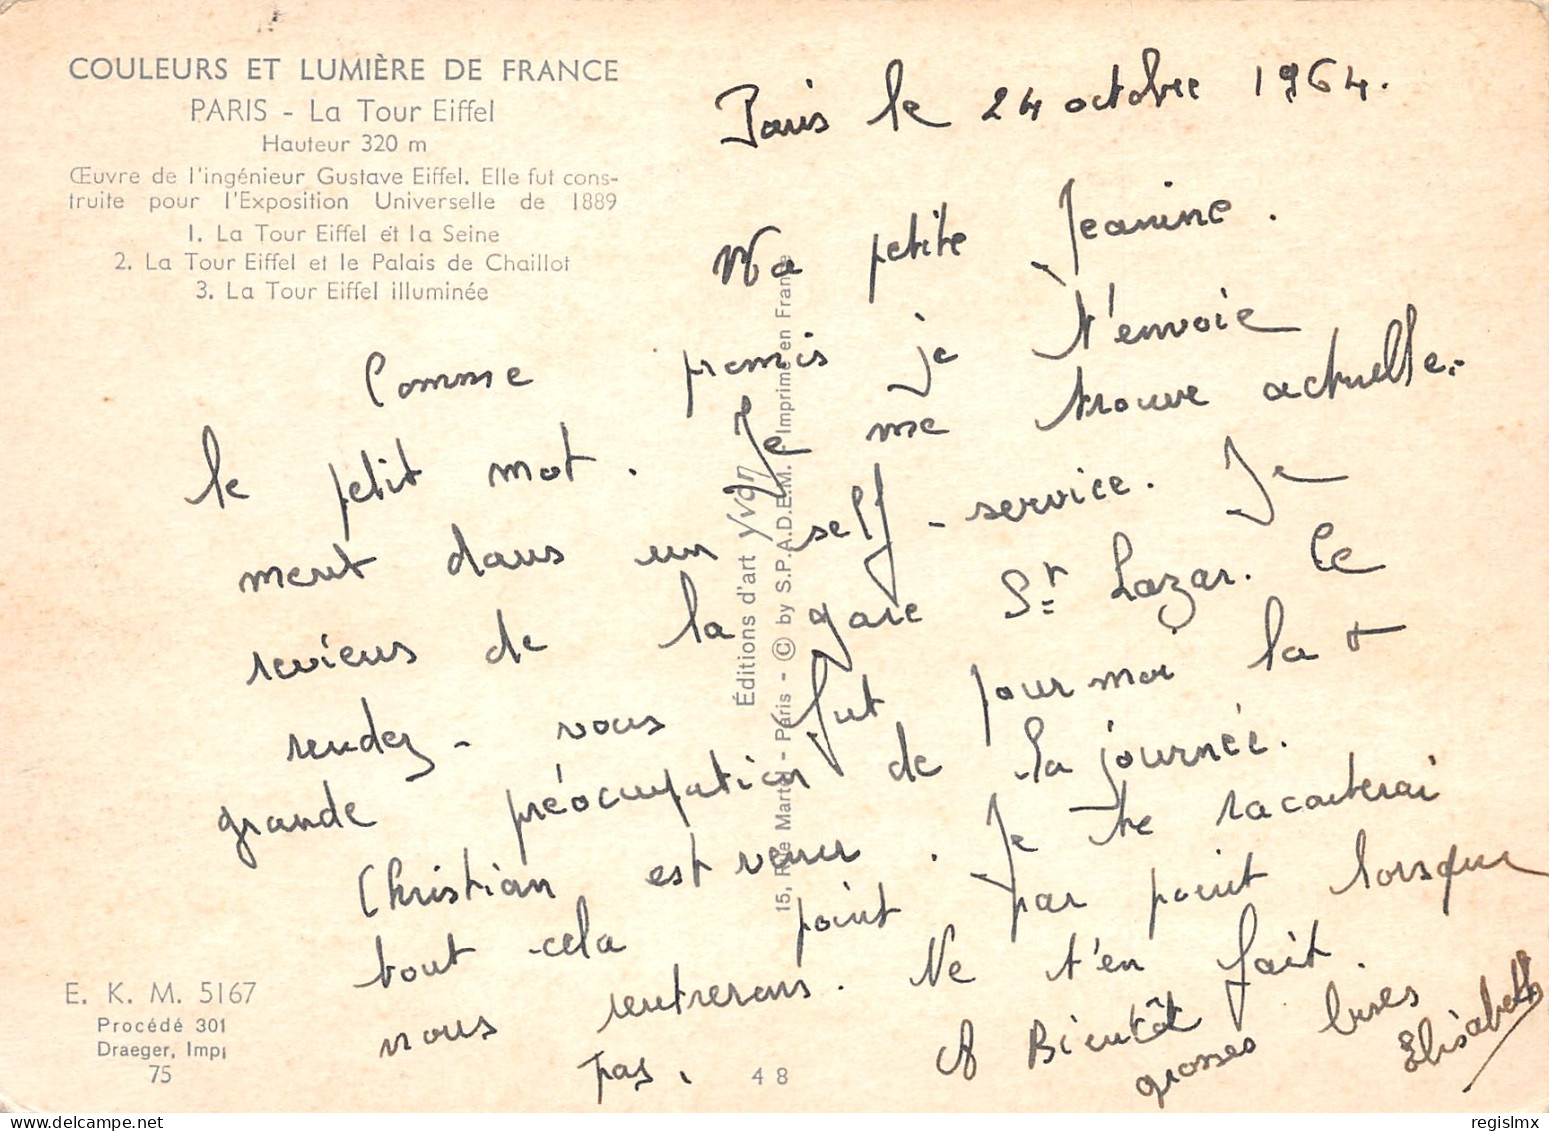 COULEURS ET LUMIÈRE DE FRANCE
PARIS - La Tour Eiffel
Hauteur 320 m
Œuvre de l'ingénieur Gustave Eiffel. Elle fut cons-
truite pour l'Exposition Universelle de 1889
1. La Tour Eiffel et la Seine
2. La Tour Eiffel et le Palais de Chaillot
3. La Tour Eiffel illuminée
Paris le 24 octobre 1964.
Ma petite Jeanine.
Comme promis je t'envoie
le petit mot. Je me trouve actuelle-
ment dans un self-service. Je
reviens de la gare St Lazar. Ce
rendez-vous fut pour moi la +
grande préocupation de la journée.
Christian est venu. Je te raconterai
tout cela point par point lorsque
nous rentrerons. Ne t'en fait
pas.
A Bientôt
grosses bises
Elisabeth
Éditions d'art Yvon
15, Rue Martel - Paris - © by S.P.A.D.E.M. - Imprimé en France
E. K. M. 5167
Procédé 301
Draeger, Imp
75
48
regislmx